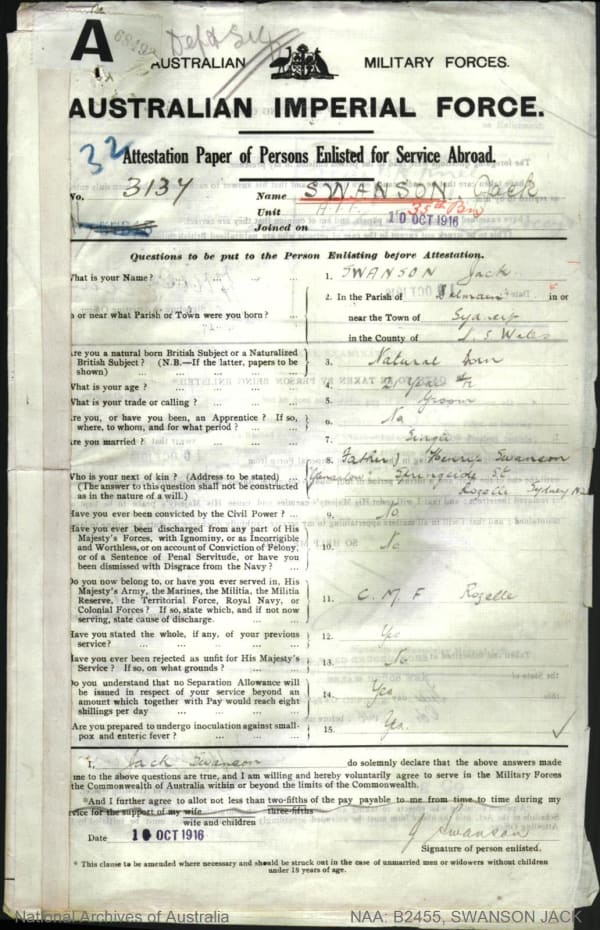 A
68192
AUSTRALIAN MILITARY FORCES.
AUSTRALIAN IMPERIAL FORCE.
32
Attestation Paper of Persons Enlisted for Service Abroad.
No. 3137 Name SWANSON Jack
Unit A.I.F. 35th Bn
Joined on 10 OCT 1916
Questions to be put to the Person Enlisting before Attestation.
What is your Name? ... ... ... 1. SWANSON Jack
2. In the Parish of in or
n or near what Parish or Town were you born? ... near the Town of Sydney
in the County of N. S. Wales
Are you a natural born British Subject or a Naturalized
British Subject? (N.B.—If the latter, papers to be
shown) ... 3. Natural born
What is your age? ... 4. 21
What is your trade or calling? ... 5. Groom
Are you, or have you been, an Apprentice? If so,
where, to whom, and for what period? ... 6. No
Are you married? ... 7. Single
8. (Father) Henry Swanson
Who is your next of kin? (Address to be stated) ... St
(The answer to this question shall not be constructed
as in the nature of a will.) Rozelle Sydney
Have you ever been convicted by the Civil Power? ... 9. No
Have you ever been discharged from any part of His
Majesty's Forces, with Ignominy, or as Incorrigible
and Worthless, or on account of Conviction of Felony,
or of a Sentence of Penal Servitude, or have you
been dismissed with Disgrace from the Navy? ... 10. No
Do you now belong to, or have you ever served in, His
Majesty's Army, the Marines, the Militia, the Militia
Reserve, the Territorial Force, Royal Navy, or
Colonial Forces? If so, state which, and if not now
serving, state cause of discharge. 11. C. M. F Rozelle
Have you stated the whole, if any, of your previous
service? ... 12. Yes
Have you ever been rejected as unfit for His Majesty's
Service? If so, on what grounds? ... 13. No
Do you understand that no Separation Allowance will
be issued in respect of your service beyond an
amount which together with Pay would reach eight
shillings per day ... 14. Yes
Are you prepared to undergo inoculation against small-
pox and enteric fever? ... 15. Yes.
I, Jack Swanson do solemnly declare that the above answers made
me to the above questions are true, and I am willing and hereby voluntarily agree to serve in the Military Forces
the Commonwealth of Australia within or beyond the limits of the Commonwealth.
*And I further agree to allot not less than two-fifths of the pay payable to me from time to time during my
three-fifths
service for the support of my wife
wife and children
Date 10 OCT 1916 J Swanson
Signature of person enlisted.
* This clause to be amended where necessary and should be struck out in the case of unmarried men or widowers without children
under 18 years of age.
National Archives of Australia NAA: B2455, SWANSON JACK